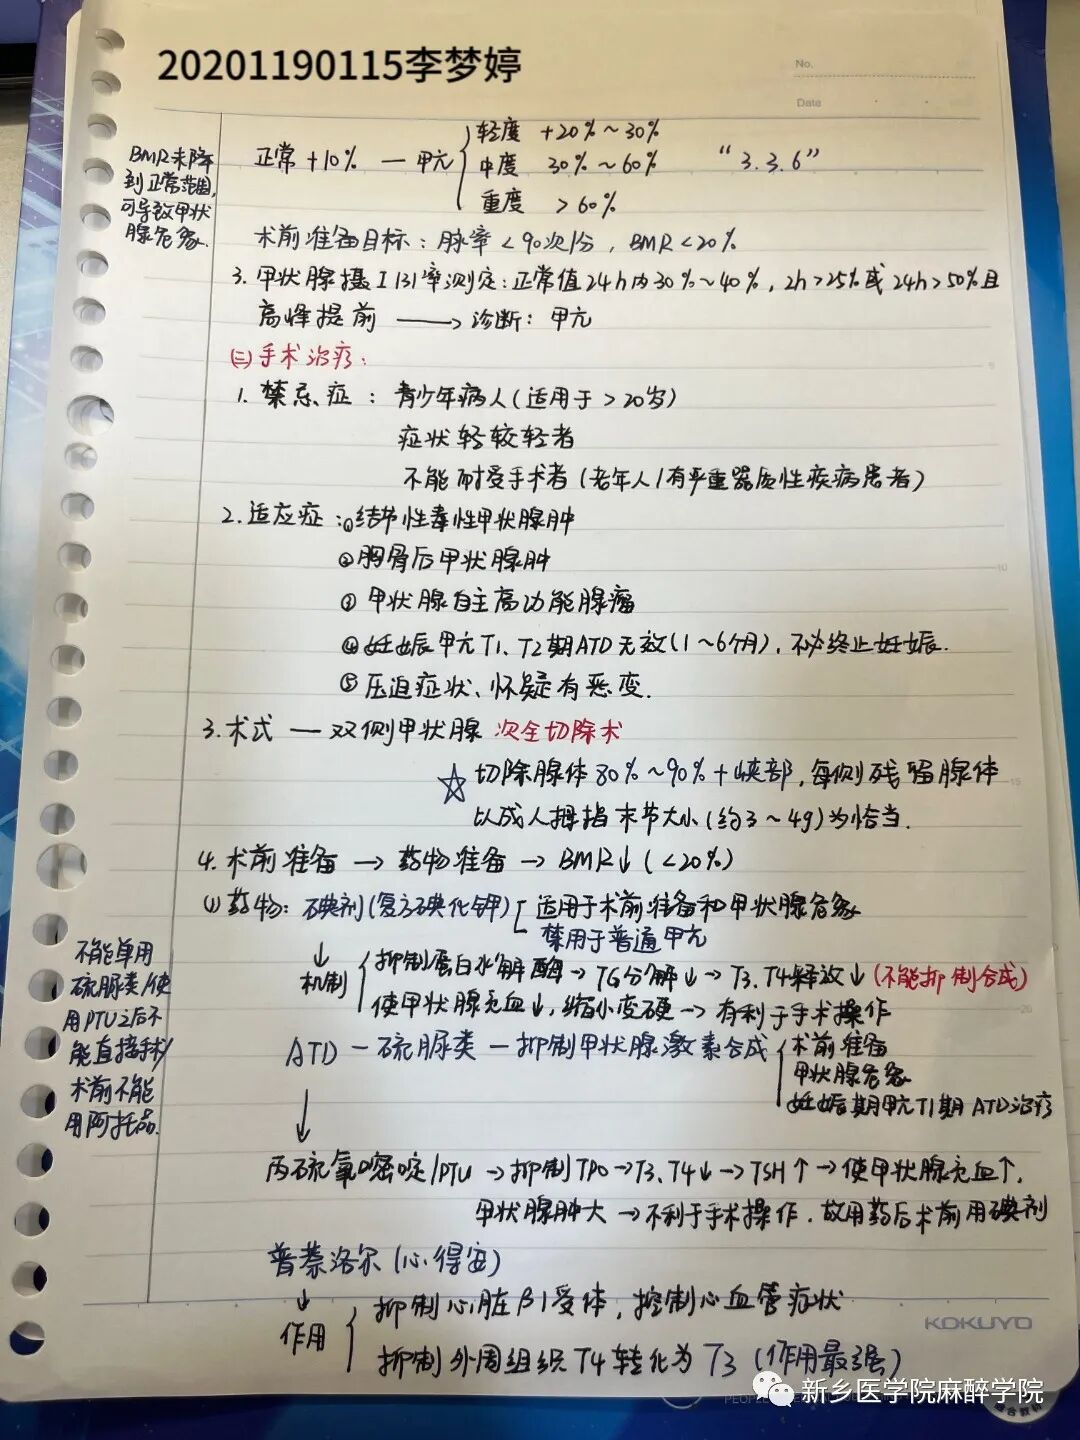 20201190115李梦婷
No.
Date
轻度 +20%~30%
正常 +10% — 甲亢 中度 30%~60% “3.3.6”
重度 >60%
BMR未降
到正常范围,
可导致甲状
腺危象.
术前准备目标:脉率<90次/分,BMR<20%
3.甲状腺摄I131率测定:正常值24h内30%~40%,2h>25%或24h>50%且
高峰提前 → 诊断:甲亢
(二)手术治疗:
1.禁忌症:青少年病人(适用于>20岁)
症状轻较轻者
不能耐受手术者(老年人/有严重器质性疾病患者)
2.适应症:①结节性毒性甲状腺肿
②胸骨后甲状腺肿
③甲状腺自主高功能腺瘤
④妊娠甲亢T1、T2期ATD无效(1~6个月),不必终止妊娠.
⑤压迫症状、怀疑有恶变.
3.术式 — 双侧甲状腺 次全切除术
☆切除腺体80%~90%+峡部,每侧残留腺体
以成人拇指末节大小(约3~4g)为恰当.
4.术前准备 → 药物准备 → BMR↓(<20%)
(1)药物:碘剂(复方碘化钾) 适用于术前准备和甲状腺危象
禁用于普通甲亢
↓
机制 抑制蛋白水解酶→TG分解↓→T3、T4释放↓(不能抑制合成)
使甲状腺充血↓,缩小变硬→有利于手术操作
不能单用
硫脲类/使
用PTU之后不
能直接手术/
术前不能
用阿托品.
ATD — 硫脲类 — 抑制甲状腺激素合成 术前准备
甲状腺危象
妊娠期甲亢T1期ATD治疗
↓
丙硫氧嘧啶/PTU→抑制TPO→T3、T4↓→TSH↑→使甲状腺充血↑,
甲状腺肿大→不利于手术操作.故用药后术前用碘剂
普萘洛尔(心得安)
↓
作用 抑制心脏β1受体,控制心血管症状
抑制外周组织T4转化为T3(作用最强)
KOKUYO
新乡医学院麻醉学院